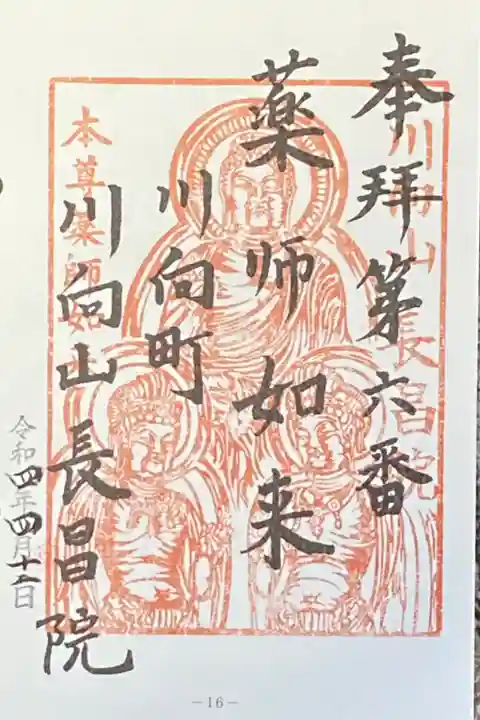 奉拝第六番
川向山長昌院
薬师如来
川向町
本尊薬師如
川向山長昌院
令和四年四月十二日
－16－